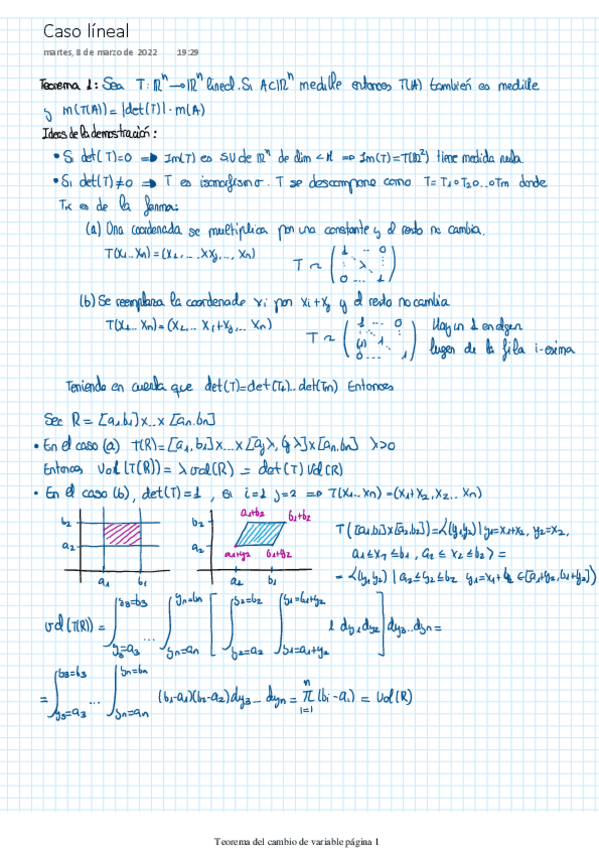 Caso líneal
martes, 8 de marzo de 2022 19:29
Teorema 1: Sea T: ℝⁿ→ℝⁿ lineal. Si A⊂ℝⁿ medible entonces T(A) también es medible
y m(T(A)) = |det(T)|·m(A)
Ideas de la demostración:
• Si det(T)=0 ⇒ Im(T) es SV de ℝⁿ de dim < n ⇒ Im(T)=T(ℝ²) tiene medida nula
• Si det(T)≠0 ⇒ T es isomorfismo. T se descompone como T=T₁∘T₂∘..∘Tm donde
Tk es de la forma:
(a) Una coordenada se multiplica por una constante y el resto no cambia.
T(x₁..xn)=(x₁,..,λxj,..,xn)
T ~ (1 ... 0 λ 0 ... 1)
(b) Se reemplaza la coordenada xi por xi+xj y el resto no cambia
T(x₁..xn)=(x₁... xi+xj... xn)
T ~ (1 ... 0 (1) 1 0 ... 1) Hay un 1 en algún
lugar de la fila i-esima
Teniendo en cuenta que det(T)=det(T₁)..det(Tm) Entonces
Sea R = [a₁,b₁]x..x[an,bn]
• En el caso (a) T(R)=[a₁,b₁]x...x[ajλ,bjλ]x[an,bn] λ>0
Entonces Vol(T(R)) = λ vol(R) = det(T) Vol(R)
• En el caso (b), det(T)=1, si i=1 j=2 ⇒ T(x₁..xn)=(x₁+x₂,x₂..xn)
b₂
a₂
a₁ b₁
b₂
a₂
a₁ b₁
a₁+b₂ b₁+b₂
a₁+a₂ b₁+a₂
T([a₁,b₁]x[a₂,b₂])={(y₁,y₂)| y₁=x₁+x₂, y₂=x₂,
a₁≤x₁≤b₁, a₂≤x₂≤b₂} =
= {(y₁,y₂) | a₂≤y₂≤b₂ y₁=x₁+y₂ ∈[a₁+y₂,b₁+y₂]}
vol(T(R)) = ∫_{y₃=a₃}^{y₃=b₃} ... ∫_{yn=an}^{yn=bn} [ ∫_{y₂=a₂}^{y₂=b₂} ∫_{y₁=a₁+y₂}^{y₁=b₁+y₂} 1 dy₁dy₂ ] dy₃..dyn =
= ∫_{y₃=a₃}^{y₃=b₃} ... ∫_{yn=an}^{yn=bn} (b₁-a₁)(b₂-a₂)dy₃... dyn = ∏_{i=1}^{n} (bi-ai) = Vol(R)
Teorema del cambio de variable página 1